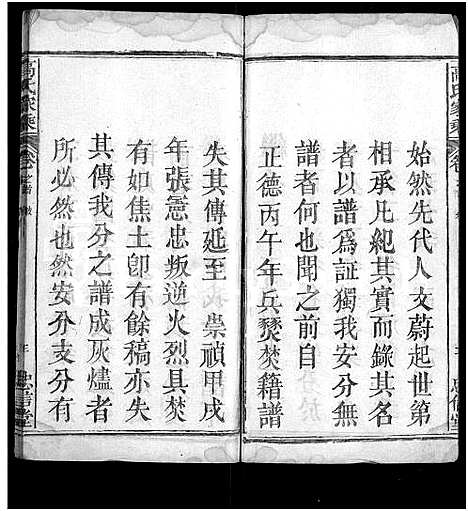 始然先代人文蔚起世第
相承凡紀其實而錄其名
者以譜爲証獨我安分無
譜者何也聞之前自
正德丙午年兵燹焚籍譜
失其傳延至 崇禎甲戌
年張憲忠叛逆火烈具焚
有如焦土卽有餘稿亦失
其傳我分之譜成灰燼者
所必然也然安分支分有
高氏家乘
高氏家乘